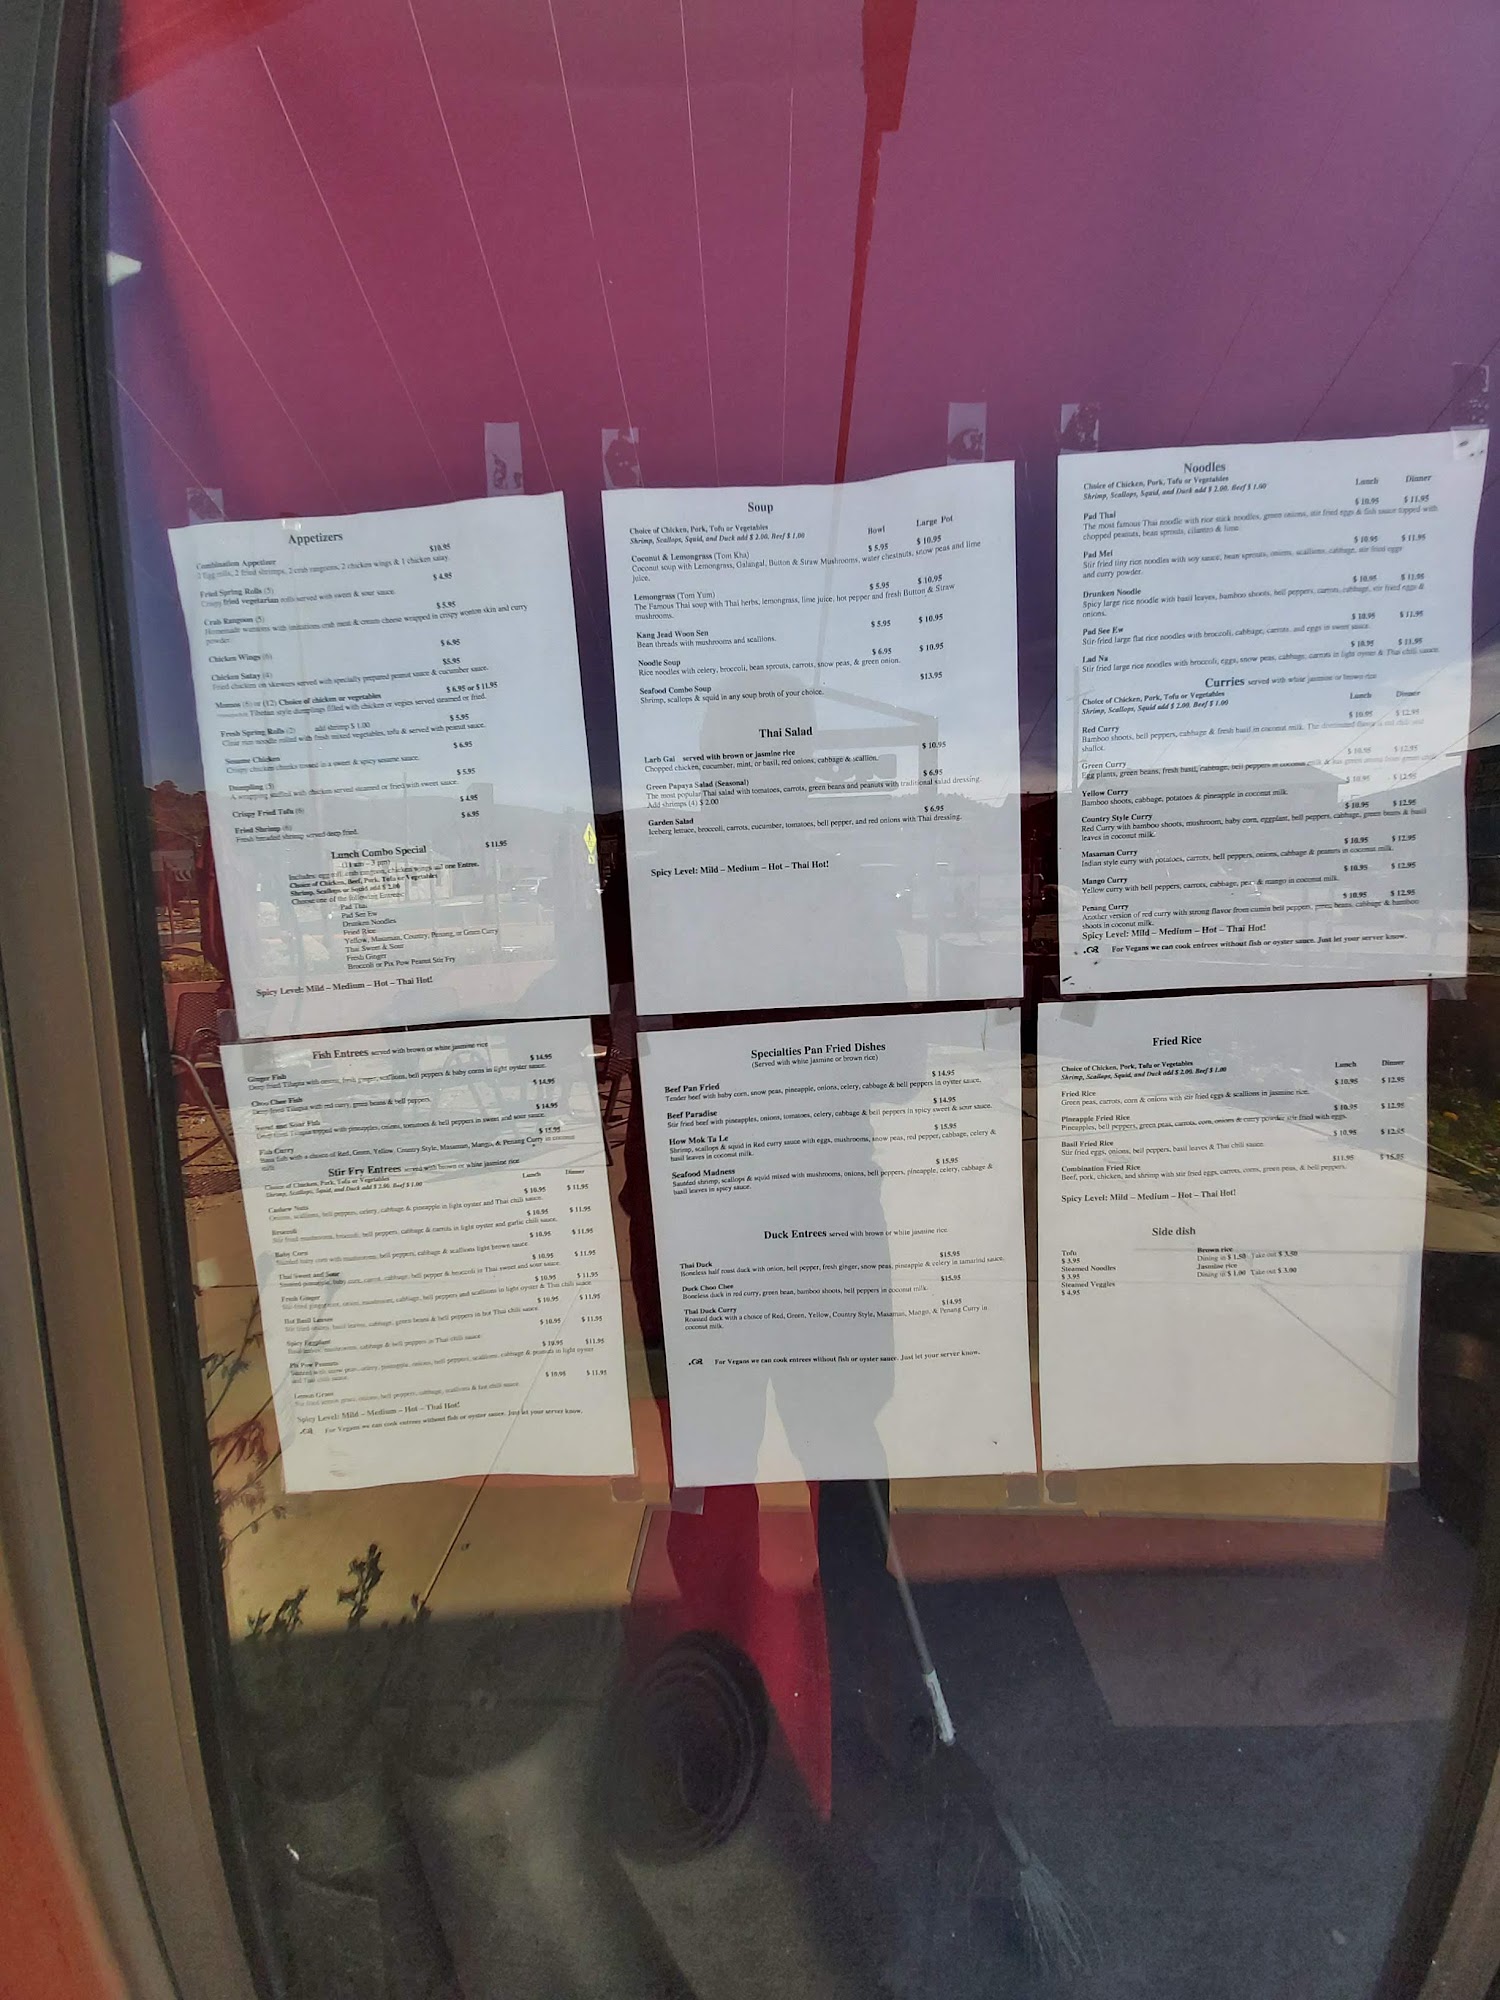 Appetizers
Combination Appetizer $10.95
2 Egg rolls, 2 fried shrimps, 2 crab rangoons, 2 chicken wings & 1 chicken satay
Fried Spring Rolls (5) $4.95
Crispy fried vegetarian rolls served with sweet & sour sauce.
Crab Rangoon (5) $5.95
Homemade wontons with imitations crab meat & cream cheese wrapped in crispy wonton skin and curry
powder.
Chicken Wings (6) $6.95
Chicken Satay (4) $5.95
Fried chicken on skewers served with specially prepared peanut sauce & cucumber sauce.
Momos (6) or (12) Choice of chicken or vegetables $6.95 or $11.95
Tibetan style dumplings filled with chicken or vegies served steamed or fried.
Fresh Spring Rolls (2) add shrimp $1.00 $5.95
Clear rice noodle rolled with fresh mixed vegetables, tofu & served with peanut sauce.
Sesame Chicken $6.95
Crispy chicken chunks tossed in a sweet & spicy sesame sauce.
Dumpling (5) $5.95
A wrapping stuffed with chicken served steamed or fried with sweet sauce.
Crispy Fried Tofu (6) $4.95
Fried Shrimp (6) $6.95
Fresh breaded shrimp served deep fried.
Lunch Combo Special $11.95
(11 am - 3 pm)
Includes: egg roll, crab rangoon, chicken wings and one Entree.
Choice of Chicken, Beef, Pork, Tofu or Vegetables
Shrimp, Scallops or Squid add $2.00
Choose one of the following Entrees:
Pad Thai
Pad See Ew
Drunken Noodles
Fried Rice
Yellow, Masaman, Country, Penang, or Green Curry
Thai Sweet & Sour
Fresh Ginger
Broccoli or Pix Pow Peanut Stir Fry
Spicy Level: Mild – Medium – Hot – Thai Hot!
Soup
Choice of Chicken, Pork, Tofu or Vegetables
Shrimp, Scallops, Squid, and Duck add $2.00, Beef $1.00 Bowl Large Pot
Coconut & Lemongrass (Tom Kha) $5.95 $10.95
Coconut soup with Lemongrass, Galangal, Button & Straw Mushrooms, water chestnuts, snow peas and lime
juice.
Lemongrass (Tom Yum) $5.95 $10.95
The Famous Thai soup with Thai herbs, lemongrass, lime juice, hot pepper and fresh Button & Straw
mushrooms.
Kang Jead Woon Sen $5.95 $10.95
Bean threads with mushrooms and scallions.
Noodle Soup $6.95 $10.95
Rice noodles with celery, broccoli, bean sprouts, carrots, snow peas, & green onion.
Seafood Combo Soup $13.95
Shrimp, scallops & squid in any soup broth of your choice.
Thai Salad
Larb Gai served with brown or jasmine rice $10.95
Chopped chicken, cucumber, mint, or basil, red onions, cabbage & scallion.
Green Papaya Salad (Seasonal) $6.95
The most popular Thai salad with tomatoes, carrots, green beans and peanuts with traditional salad dressing.
Add shrimps (4) $2.00
Garden Salad $6.95
Iceberg lettuce, broccoli, carrots, cucumber, tomatoes, bell pepper, and red onions with Thai dressing.
Spicy Level: Mild – Medium – Hot – Thai Hot!
Noodles
Choice of Chicken, Pork, Tofu or Vegetables Lunch Dinner
Shrimp, Scallops, Squid, and Duck add $2.00, Beef $1.00
Pad Thai $10.95 $11.95
The most famous Thai noodle with rice stick noodles, green onions, stir fried eggs & fish sauce topped with
chopped peanuts, bean sprouts, cilantro & lime.
Pad Mei $10.95 $11.95
Stir fried tiny rice noodles with soy sauce, bean sprouts, onions, scallions, cabbage, stir fried eggs
and curry powder.
Drunken Noodle $10.95 $11.95
Spicy large rice noodle with basil leaves, bamboo shoots, bell peppers, carrots, cabbage, stir fried eggs &
onions.
Pad See Ew $10.95 $11.95
Stir fried large flat rice noodles with broccoli, cabbage, carrots, and eggs in sweet sauce.
Lad Na $10.95 $11.95
Stir fried large rice noodles with broccoli, eggs, snow peas, cabbage, carrots in light oyster & Thai chili sauce.
Curries served with white jasmine or brown rice
Choice of Chicken, Pork, Tofu or Vegetables Lunch Dinner
Shrimp, Scallops, Squid add $2.00, Beef $1.00
Red Curry $10.95 $12.95
Bamboo shoots, bell peppers, cabbage & fresh basil in coconut milk. The dominated flavor is red chili and
shallot.
Green Curry $10.95 $12.95
Egg plants, green beans, fresh basil, cabbage, bell peppers in coconut milk & has green aroma from green chili
Yellow Curry $10.95 $12.95
Bamboo shoots, cabbage, potatoes & pineapple in coconut milk.
Country Style Curry $10.95 $12.95
Red Curry with bamboo shoots, mushroom, baby corn, eggplant, bell peppers, cabbage, green beans & basil
leaves in coconut milk.
Masaman Curry $10.95 $12.95
Indian style curry with potatoes, carrots, bell peppers, onions, cabbage & peanuts in coconut milk.
Mango Curry $10.95 $12.95
Yellow curry with bell peppers, carrots, cabbage, peas & mango in coconut milk.
Penang Curry $10.95 $12.95
Another version of red curry with strong flavor from cumin bell peppers, green beans, cabbage & bamboo
shoots in coconut milk.
Spicy Level: Mild – Medium – Hot – Thai Hot!
For Vegans we can cook entrees without fish or oyster sauce. Just let your server know.
Fish Entrees served with brown or white jasmine rice
Ginger Fish $14.95
Deep fried Tilapia with onions, fresh ginger, scallions, bell peppers & baby corns in light oyster sauce.
Choo Chee Fish $14.95
Deep fried Tilapia with red curry, green beans & bell peppers.
Sweet and Sour Fish $14.95
Deep fried Tilapia topped with pineapples, onions, tomatoes & bell peppers in sweet and sour sauce.
Fish Curry $15.95
Basa fish with a choice of Red, Green, Yellow, Country Style, Masaman, Mango, & Penang Curry in coconut
milk.
Stir Fry Entrees served with brown or white jasmine rice
Choice of Chicken, Pork, Tofu or Vegetables Lunch Dinner
Shrimp, Scallops, Squid, and Duck add $2.00, Beef $1.00
Cashew Nuts $10.95 $11.95
Onions, scallions, bell peppers, celery, cabbage & pineapple in light oyster and Thai chili sauce.
Broccoli $10.95 $11.95
Stir fried mushrooms, broccoli, bell peppers, cabbage & carrots in light oyster and garlic chili sauce.
Baby Corn $10.95 $11.95
Sautéed baby corn with mushrooms, bell peppers, cabbage & scallions light brown sauce
Thai Sweet and Sour $10.95 $11.95
Sautéed pineapple, baby corn, carrot, cabbage, bell pepper & broccoli in Thai sweet and sour sauce.
Fresh Ginger $10.95 $11.95
Stir fried ginger root, onion, mushroom, cabbage, bell peppers and scallions in light oyster & Thai chili sauce
Hot Basil Leaves $10.95 $11.95
Stir fried onions, basil leaves, cabbage, green beans & bell peppers in hot Thai chili sauce
Spicy Eggplant $10.95 $11.95
Basil leaves, mushrooms, cabbage & bell peppers in Thai chili sauce.
Pix Pow Peanuts $10.95 $11.95
Sautéed with snow peas, celery, pineapple, onions, bell peppers, scallions, cabbage & peanuts in light oyster
and Thai chili sauce.
Lemon Grass $10.95 $11.95
Stir fried lemon grass, onions, bell peppers, cabbage, scallions & hot chili sauce.
Spicy Level: Mild – Medium – Hot – Thai Hot!
For Vegans we can cook entrees without fish or oyster sauce. Just let your server know.
Specialties Pan Fried Dishes
(Served with white Jasmine or brown rice)
Beef Pan Fried $14.95
Tender beef with baby corn, snow peas, pineapple, onions, celery, cabbage & bell peppers in oyster sauce.
Beef Paradise $14.95
Stir fried beef with pineapples, onions, tomatoes, celery, cabbage & bell peppers in spicy sweet & sour sauce.
How Mok Ta Le $15.95
Shrimp, scallops & squid in Red curry sauce with eggs, mushrooms, snow peas, red pepper, cabbage, celery &
basil leaves in coconut milk.
Seafood Madness $15.95
Sautéed shrimp, scallops & squid mixed with mushrooms, onions, bell peppers, pineapple, celery, cabbage &
basil leaves in spicy sauce.
Duck Entrees served with brown or white jasmine rice
Thai Duck $15.95
Boneless half roast duck with onion, bell pepper, fresh ginger, snow peas, pineapple & celery in tamarind sauce.
Duck Choo Chee $15.95
Boneless duck in red curry, green bean, bamboo shoots, bell peppers in coconut milk.
Thai Duck Curry $14.95
Roasted duck with a choice of Red, Green, Yellow, Country Style, Masaman, Mango, & Penang Curry in
coconut milk.
For Vegans we can cook entrees without fish or oyster sauce. Just let your server know.
Fried Rice
Choice of Chicken, Pork, Tofu or Vegetables Lunch Dinner
Shrimp, Scallops, Squid, and Duck add $2.00, Beef $1.00
Fried Rice $10.95 $12.95
Green peas, carrots, corn & onions with stir fried eggs & scallions in jasmine rice.
Pineapple Fried Rice $10.95 $12.95
Pineapples, bell peppers, green peas, carrots, corn, onions & curry powder stir fried with eggs.
Basil Fried Rice $10.95 $12.95
Stir fried eggs, onions, bell peppers, basil leaves & Thai chili sauce.
Combination Fried Rice $11.95 $15.95
Beef, pork, chicken, and shrimp with stir fried eggs, carrots, corns, green peas, & bell peppers.
Spicy Level: Mild – Medium – Hot – Thai Hot!
Side dish
Tofu Brown rice
$3.95 Dining in $1.50 Take out $3.50
Steamed Noodles Jasmine rice
$3.95 Dining in $1.00 Take out $3.00
Steamed Veggies
$4.95